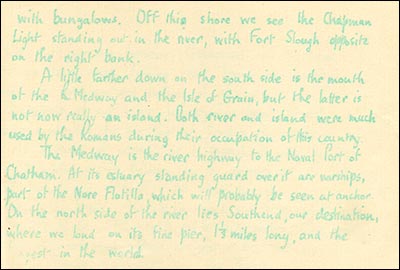 with bungalows. Off this shore we see the Chapman
Light standing out in the river, with Fort Slough opposite
on the right bank.
A little farther down on the south side is the mouth
of the R. Medway and the Isle of Grain, but the latter is
not now really an island. Both river and island were much
used by the Romans during their occupation of this country.
The Medway is the river highway to the Naval Port of
Chatham. At its estuary standing guard over it are warships,
part of the Nore Flotilla, which will probably be seen at anchor.
On the north side of the river lies Southend, our destination,
where we land on its fine pier, 1⅓ miles long, and the
in the world.